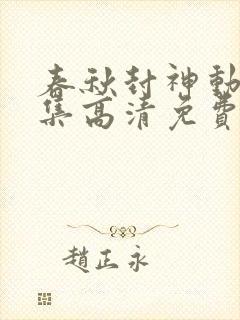 春秋封神動
集高清免費
趙正永